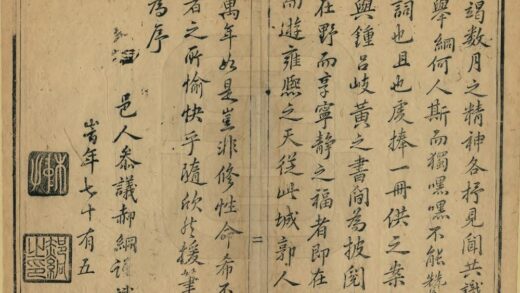 竭数月之精神各抒見聞共識
舉綱何人斯而獨嘿嘿不能贊
詞也且也虔捧一冊供之案
與鍾呂岐黃之書間為披閱
在野而享寧静之福者即在
而遊雍熙之天従此城郭人
萬年如是豈非修性命希不
者之所愉快乎隨欣然援筆
為序
邑人叅議郝綱謹
時年七十有五
郝綱之印